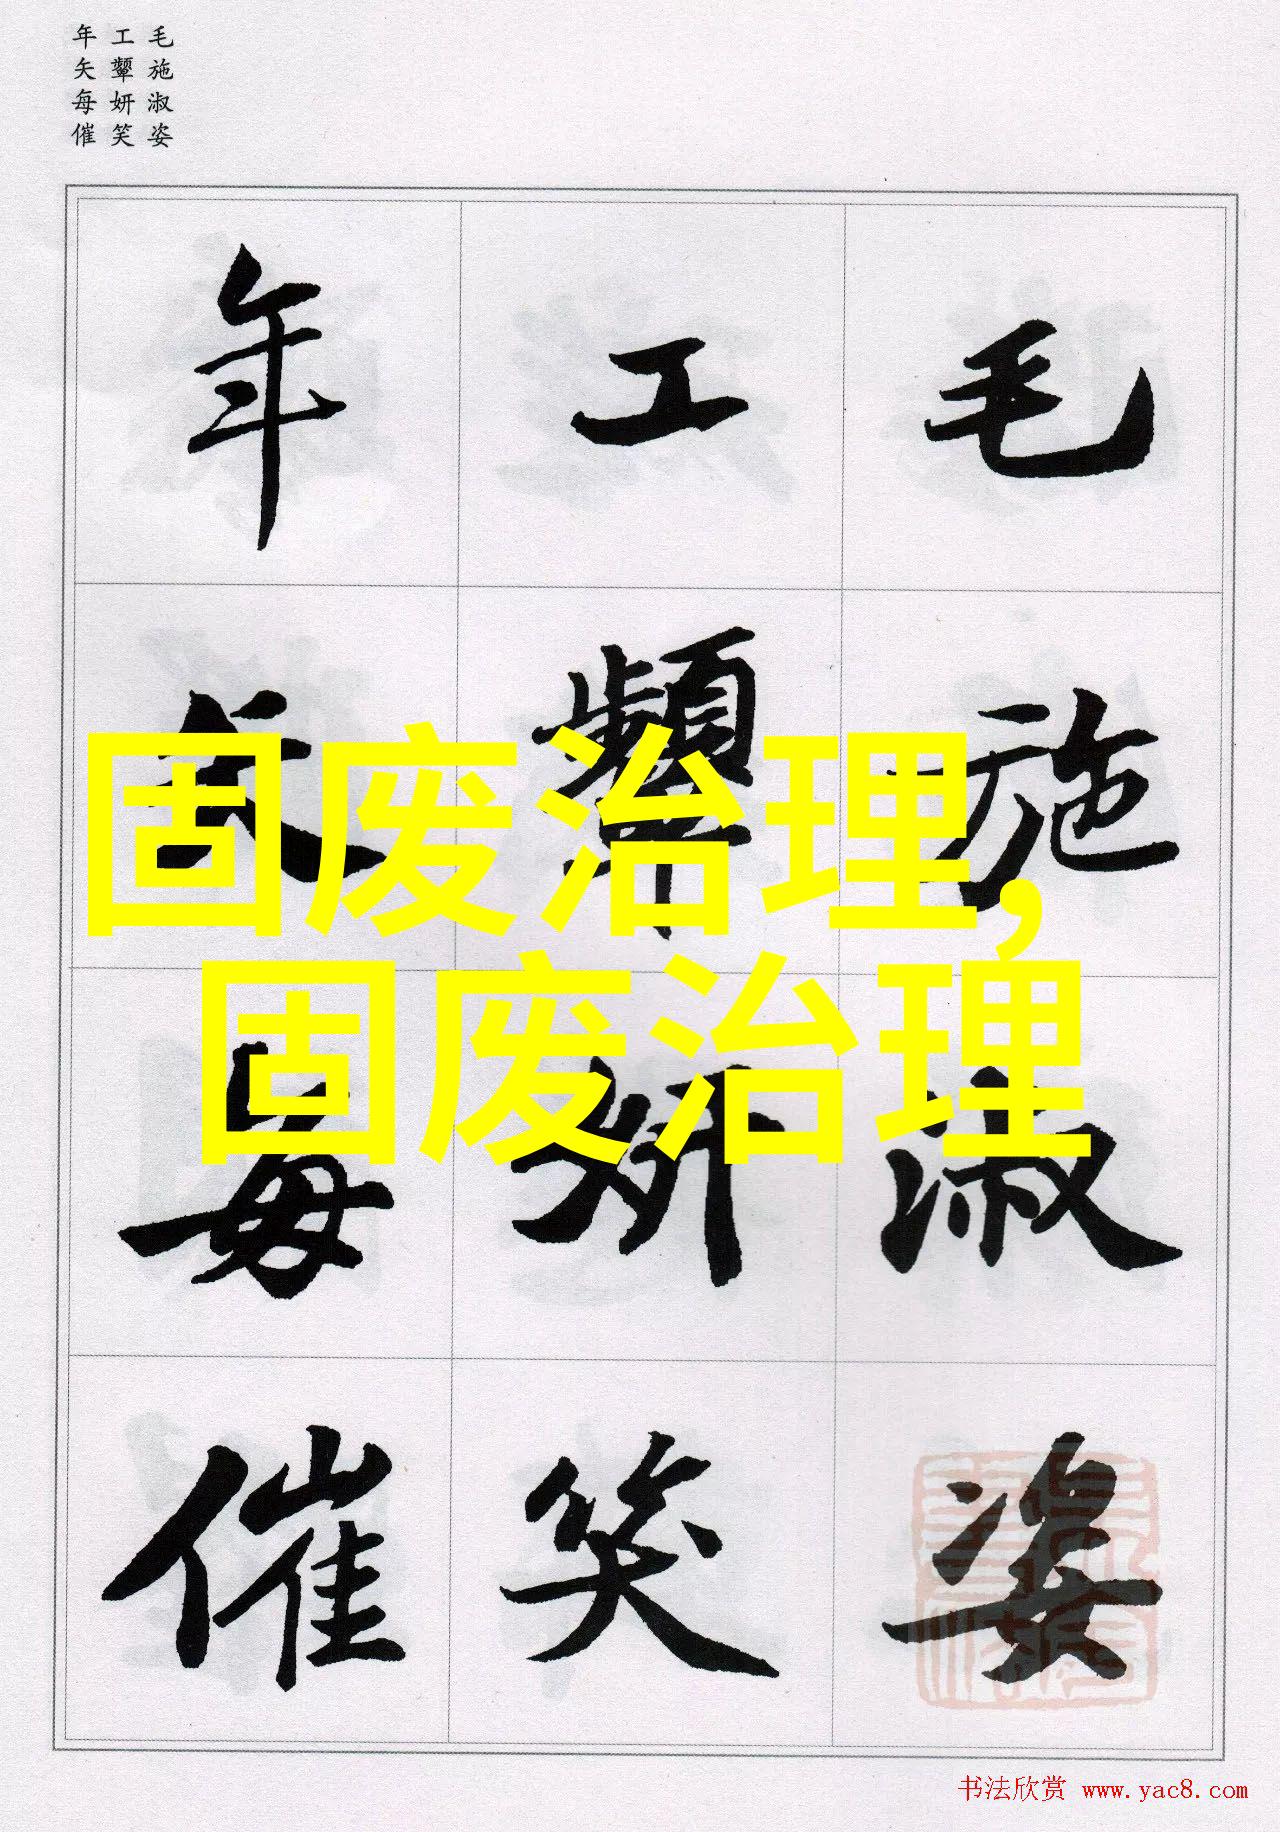 毛施淑姿
工颦妍笑
年矢每催
毛施淑姿
工颦妍笑
年矢每催
固废治理,
固废治理
书法欣赏 www.yac8.com